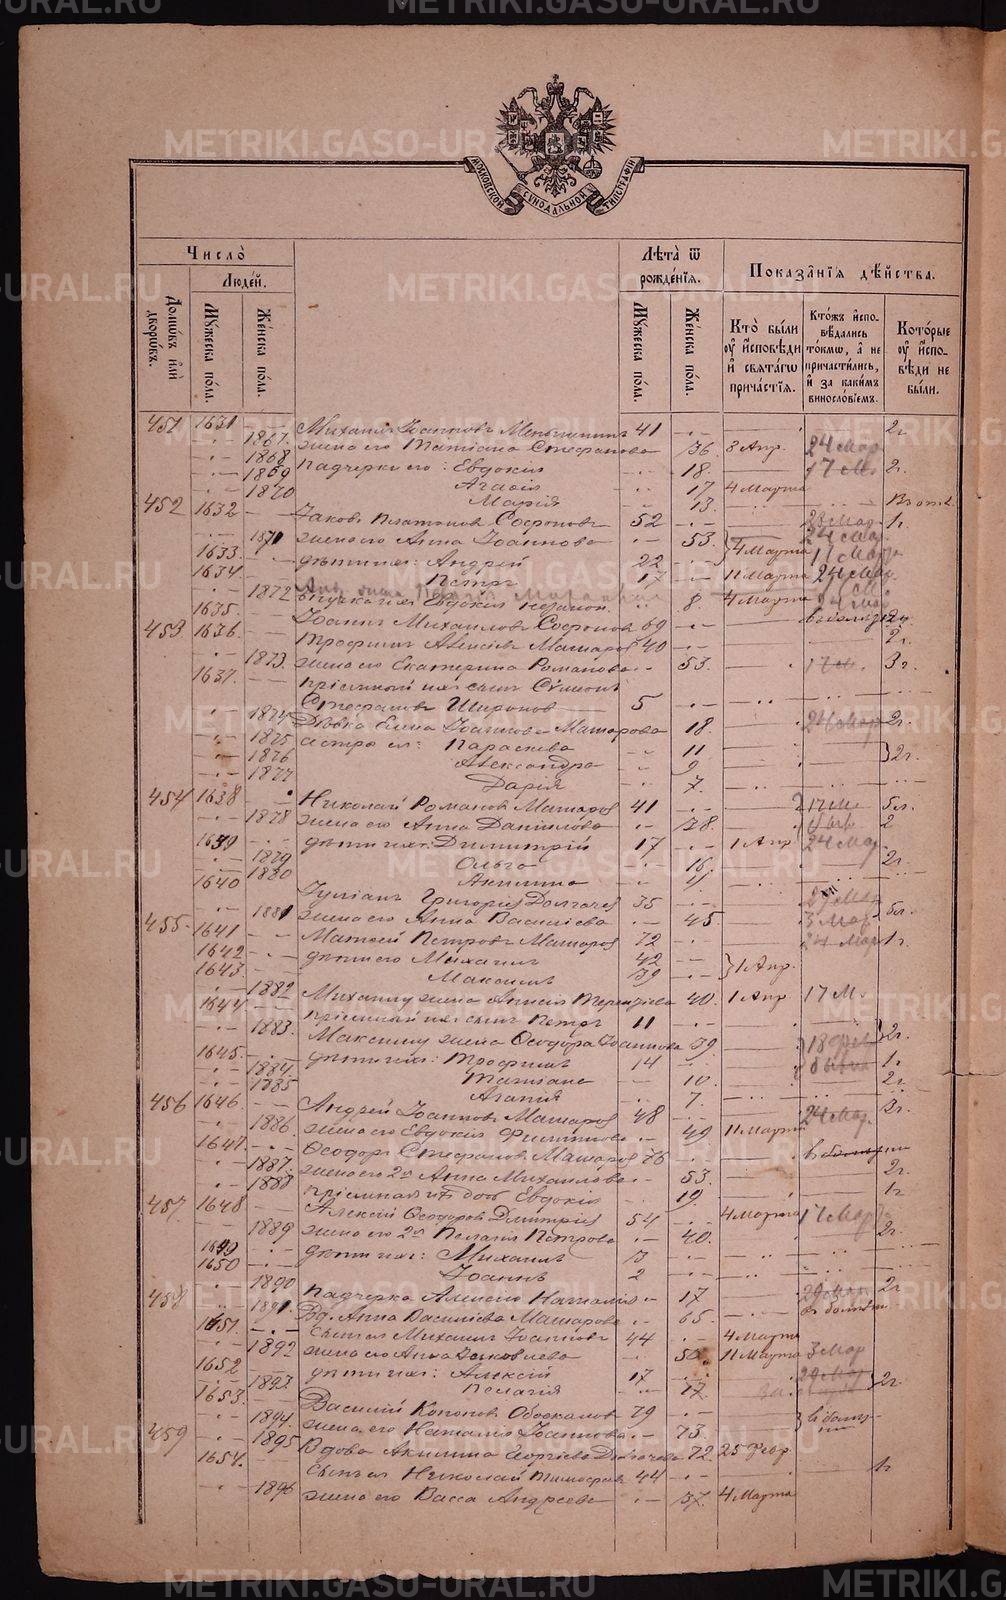 METRIKI.GASO-URAL.RU
МОСКОВСКОЙ СѴНОДАЛЬНОЙ ТИПОГРАФІИ
Число̀
Людей.
Домѡвъ или дворѡвъ.
Мꙋжеска пола.
Женска пола.
Лѣта ѿ рожденїѧ.
Мꙋжеска пола.
Женска пола.
Показанїѧ дѣйства.
Кто были ᲂу исповѣди и свѧтагѡ причастїѧ.
Ктожъ исповѣдались токмѡ, а не причастились, и за какимъ винословїемъ.
Которые ᲂу исповѣди не были.
451 1631 Михаилъ Іоанновъ Меньшинъ 41 2г.
1867. жена его Татіана Стефанова 36 8 Апр. 24 Мар
1868 падчерки его: Евдокія 18. 17 М. 2г.
1869 Агафія 17 4 Марта
1870 Марія 13.
452 1632 Іаковъ Платоновъ Софроновъ 52 1г.
1871 жена его Анна Іоаннова 53. 24 Мар.
1633 дѣти ихъ: Андрей 22 4 Марта
1634 Петръ 17 11 Марта 24 Мар.
1872 внучка ихъ Евдокія незакон. 8. 4 Марта
1635. Іоаннъ Михаиловъ Софроновъ 69
453 1636. Трофимъ Алексіевъ Машаровъ 40 2г.
1873. жена его Екатерина Романова 53. 17 М. 3г.
1637. пріемный ихъ сынъ Сѵмеонъ
Стефановъ Широковъ 5
1874 Дѣвка Елена Іоаннова Машарова 18. 24 Мар 2г.
1875 сестры ея: Параскева 11
1876 Александра 9 2г.
1877 Дарія 7.
454 1638 Николай Романовъ Машаровъ 41 17 М. 5л.
1878 жена его Анна Даніилова 38. 2
1639 дѣти ихъ: Димитрій 17 1 Апр 24 Мар
1879 Ольга 16. 2г.
1880 Акилина 4
1640 Іуліанъ Григорьевъ Долгачевъ 35
1881 жена его Анна Василіева 45. 3 Мар. 5л.
455 1641 Матѳей Петровъ Машаровъ 72 24 Мар 1г.
1642 дѣти его Михаилъ 42
1643. Максимъ 39 1 Апр.
1882 Михаилу жена Анисія Терентіева 40. 1 Апр 17 М.
1644 пріемный ихъ сынъ Петръ 11
1883. Максиму жена Ѳеодора Іоаннова 39 2г.
1645. дѣти ихъ: Трофимъ 14 1г.
1884. Татіана 10. 2г.
1885 Агапія 7.
456 1646 Андрей Іоанновъ Машаровъ 48 24 Мар. 3г.
1886. жена его Евдокія Филиппова 49 11 Марта
1647. Ѳеодоръ Стефановъ Машаровъ 76
1887. жена его 2я Анна Михаилова 53. 2г.
1888 пріемная ихъ дочь Евдокія 19. 1г
457 1648 Алексій Ѳеодоровъ Дмитріевъ 54 4 Марта 17 Мар
1889 жена его 2я Пелагія Петрова 40. 2г.
1649 дѣти ихъ: Михаилъ 3
1650 Іоаннъ 2
1890 падчерка Алексію Наталія 17 2г
458 1891. Вд. Анна Василіева Машарова 65.
1651. сынъ ея Михаилъ Іоанновъ 44 4 Марта
1892 жена его Анна Іаковлева 50. 11 Марта 3 Мар
1652 дѣти ихъ: Алексій 17
1893 Пелагія 12 2г
1653. Василій Кононовъ 79
1894. жена его Наталія Іоаннова 73.
459 1895 Вдова Акилина Георгіева Долгачева 72. 25 Февр.
1654. сынъ ея Николай 44 1г
1896 жена его Васса Андреева 37. 4 Марта